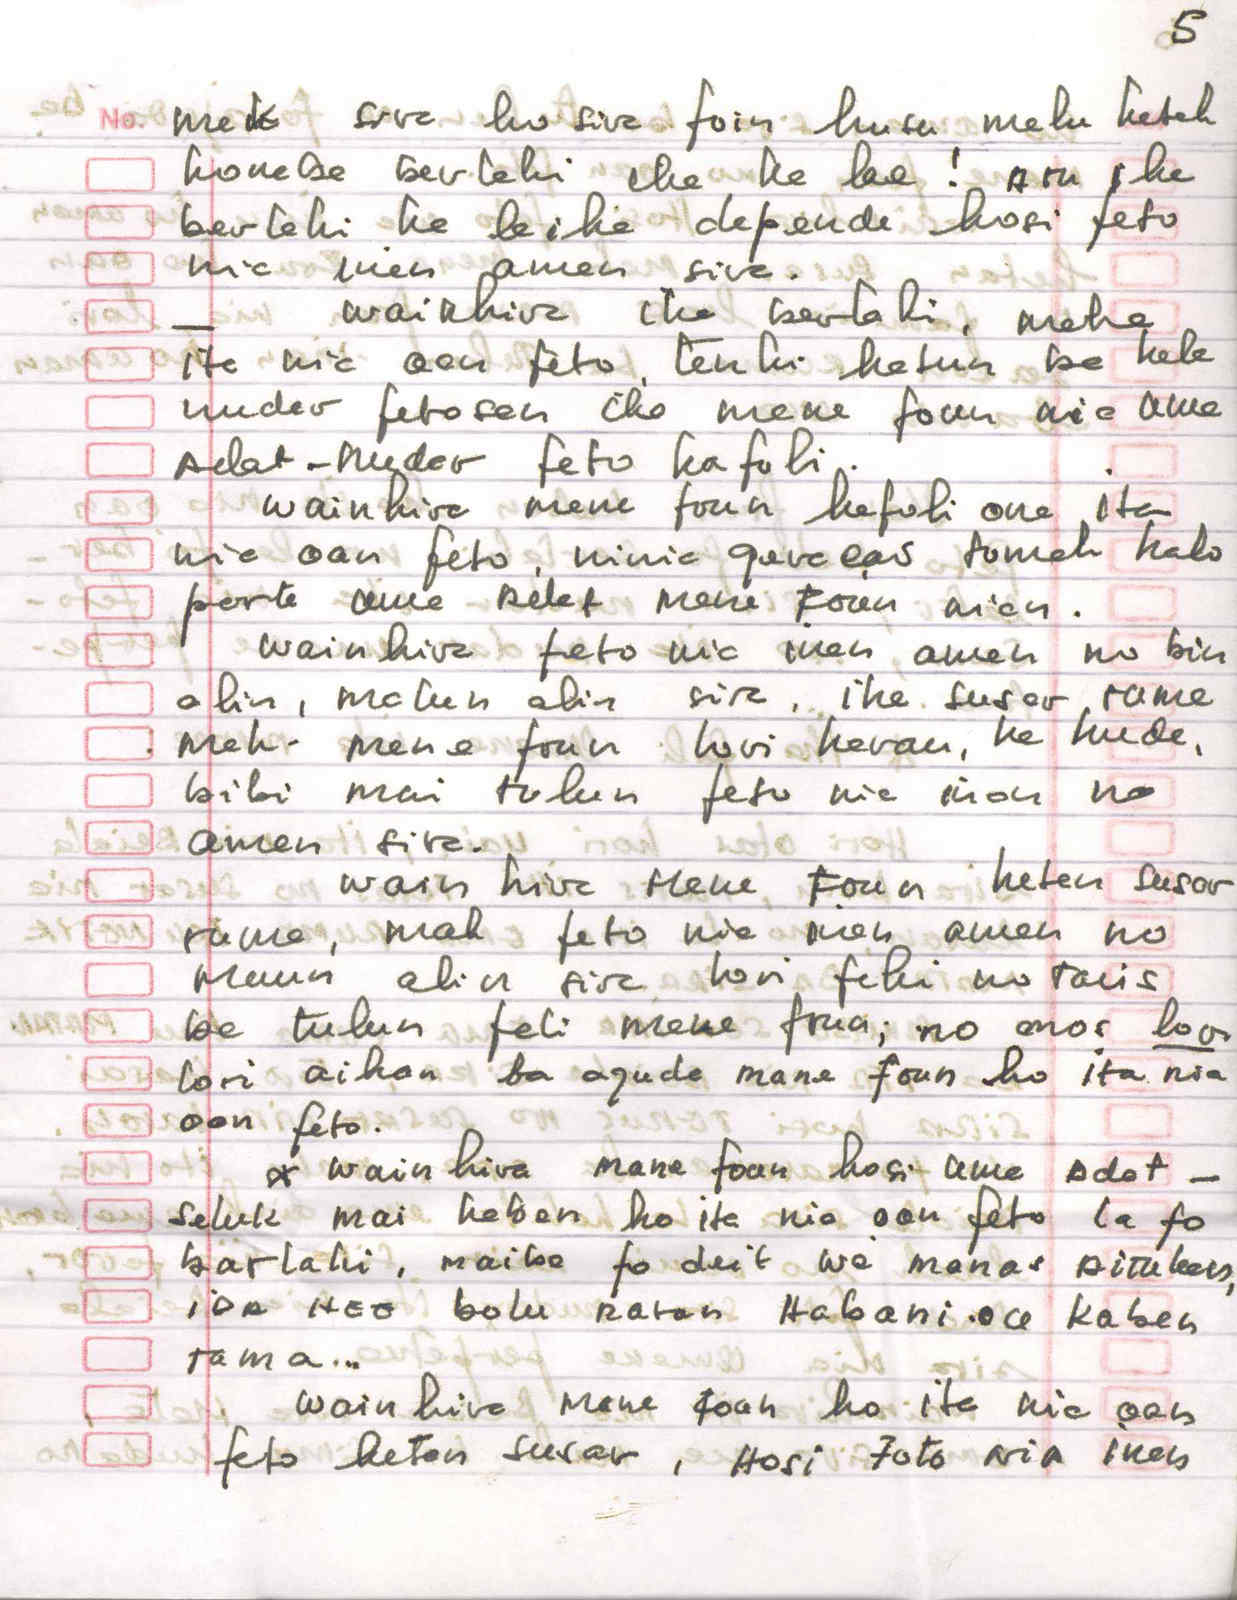 5
No. mak sira ho sira foin husu malu katak
konaba barlaki iha ka lae! Atu iha
barlaki ka laiha depende hosi feto
nia inan aman sira.
— wainhira iha barlaki, mana
ita nia oan feto, tenki hatun ba hela
nudar fetosan iha mane foun nia uma
Adat - Nudar feto hafoli.
wainhira mane foun hafoli ona ita
nia oan feto, ninia quracas tomak halo
parte uma Adat mane Foun nian.
wainhira feto nia inan, aman no bin
alin, maun alin sira, iha susar ruma
mak - mane foun lori karau, ka kuda,
bibi mai tulun feto nia inan no
aman sira.
wain hira Mane Foun hetan susar
ruma, mak feto nia inan aman no
maun alin sira lori fahi no tais
ba tulun fali mane foun, no mos lor
lori aihan ba ajuda mane foun ho ita nia
oan feto.
* wainhira mane foun hosi uma Adat -
seluk mai kaben ho ita nia oan feto la fo
barlaki, maibe fo deit we manas Aitukan,
IDA NEE bolu naran Habani .oce kaben
tama...
wainhira mane Foun ho ita nia oan
feto hetan susar, Hosi Foto NiA inan